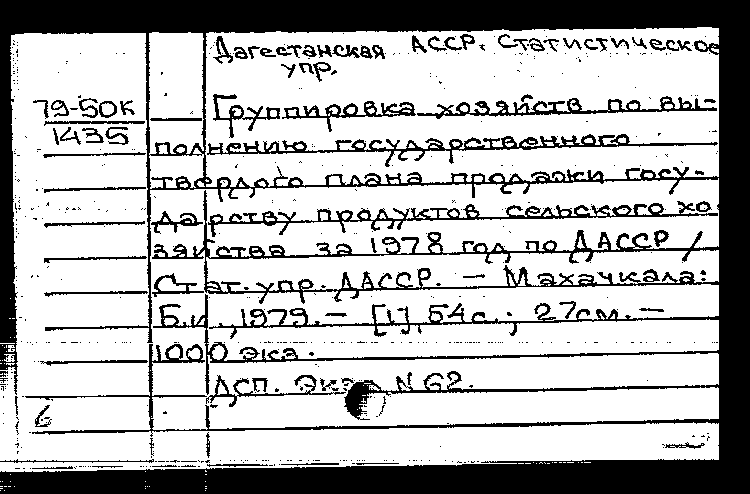 Дагестанская АССР. Статистическое
упр.
79-50К
1435
Группировка хозяйств по вы-
полнению государственного
твердого плана продажи госу-
дарству продуктов сельского хо
зяйства за 1978 год по ДАССР /
Стат. упр. ДАССР. — Махачкала:
Б.и., 1979. — [1], 54 с.; 27 см. —
1000 экз.
ДСП. Экз. N 62.
6